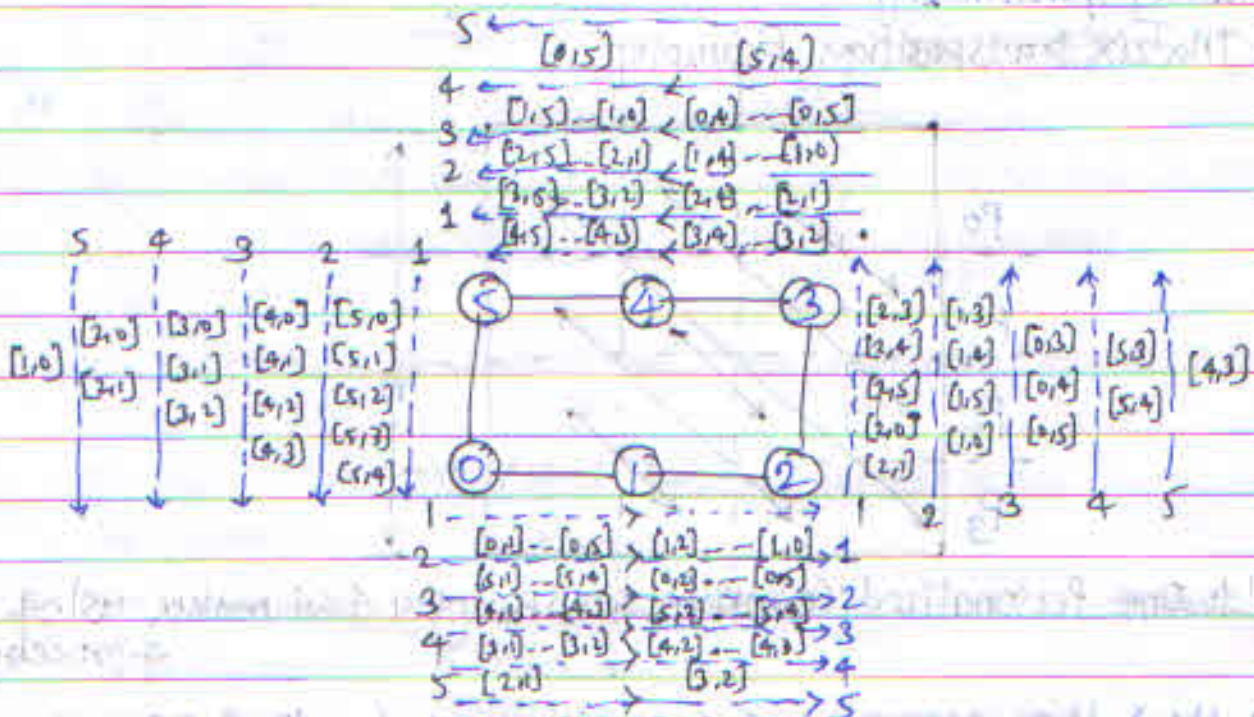 5
[0,5] [5,4]
4
[1,5]--[1,0] [0,4]---[0,5]
3
[2,5]--[2,1] [1,4]--[1,0]
2
[3,5]--[3,2] [2,4]--[2,1]
1
[4,5]--[4,3] [3,4]--[3,2]
5 4 3 2 1
[1,0]
[2,0]
[2,1]
[3,0]
[3,1]
[3,2]
[4,0]
[4,1]
[4,2]
[4,3]
[5,0]
[5,1]
[5,2]
[5,3]
[5,4]
5 4 3
0 1 2
[2,3]
[2,4]
[2,5]
[2,0]
[2,1]
[1,3]
[1,4]
[1,5]
[1,0]
[0,3]
[0,4]
[0,5]
[5,3]
[5,4]
[4,3]
1 2 3 4 5
1
2 [0,1]--[0,5] [1,2]---[1,0] 1
[5,1]--[5,4] [0,2]---[0,5]
3 2
[4,1]--[4,3] [5,2]--[5,4]
3
4 [3,1]--[3,2] [4,2]--[4,3]
4
5 [2,1] [3,2]
5